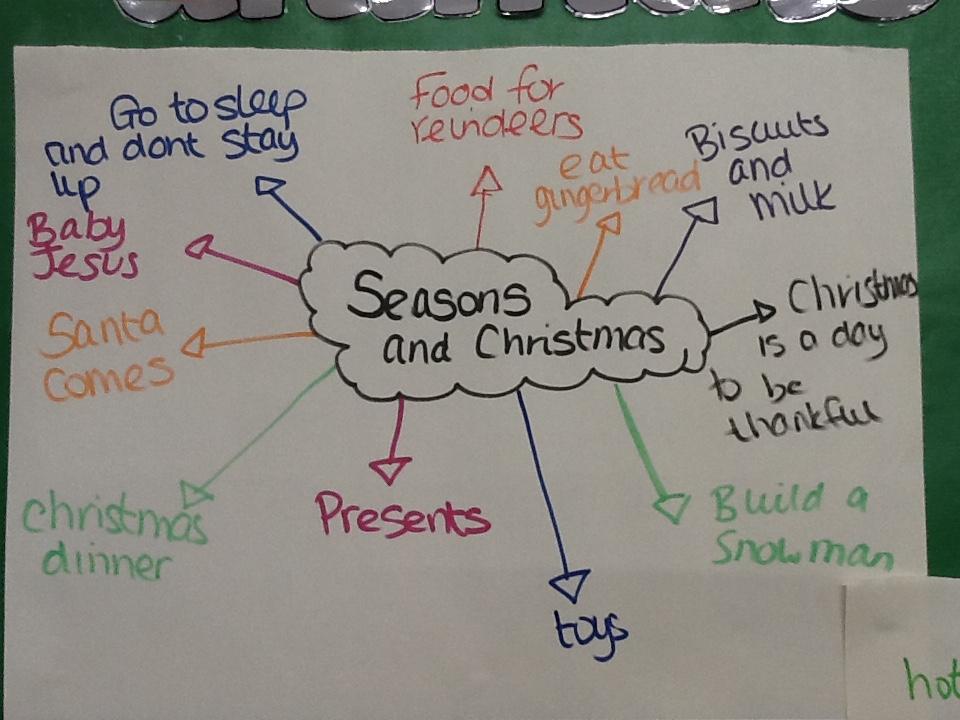 Go to sleep
and dont stay
up
Food for
reindeers
eat
gingerbread
Biscuits
and
milk
Baby
Jesus
Seasons
and Christmas
Christmas
is a day
to be
thankful
Santa
comes
christmas
dinner
Presents
toys
Build a
Snowman
hot